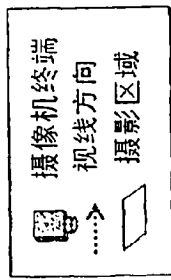 摄像机终端
视线方向
摄影区域